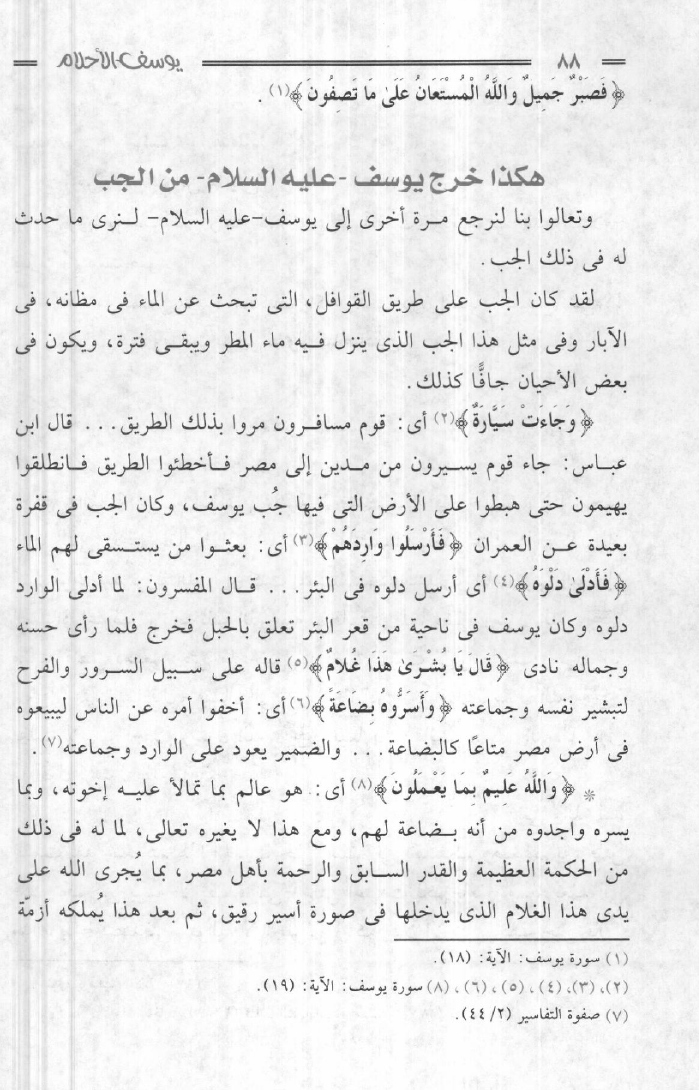 ٨٨ يوسف الأحلام
﴿فَصَبْرٌ جَمِيلٌ وَاللَّهُ الْمُسْتَعَانُ عَلَىٰ مَا تَصِفُونَ﴾(١) .
هكذا خرج يوسف -عليه السلام- من الجب
وتعالوا بنا لنرجع مرة أخرى إلى يوسف-عليه السلام- لنرى ما حدث
له فى ذلك الجب.
لقد كان الجب على طريق القوافل، التى تبحث عن الماء فى مظانه، فى
الآبار وفى مثل هذا الجب الذى ينزل فيه ماء المطر ويبقى فترة، ويكون فى
بعض الأحيان جافًّا كذلك.
﴿وَجَاءَتْ سَيَّارَةٌ﴾(٢) أى: قوم مسافرون مروا بذلك الطريق... قال ابن
عباس: جاء قوم يسيرون من مدين إلى مصر فأخطئوا الطريق فانطلقوا
يهيمون حتى هبطوا على الأرض التى فيها جُب يوسف، وكان الجب فى قفرة
بعيدة عن العمران ﴿فَأَرْسَلُوا وَارِدَهُمْ﴾(٣) أى: بعثوا من يستسقى لهم الماء
﴿فَأَدْلَىٰ دَلْوَهُ﴾(٤) أى أرسل دلوه فى البئر... قال المفسرون: لما أدلى الوارد
دلوه وكان يوسف فى ناحية من قعر البئر تعلق بالحبل فخرج فلما رأى حسنه
وجماله نادى ﴿قَالَ يَا بُشْرَىٰ هَذَا غُلامٌ﴾(٥) قاله على سبيل السرور والفرح
لتبشير نفسه وجماعته ﴿وَأَسَرُّوهُ بِضَاعَةً﴾(٦) أى: أخفوا أمره عن الناس ليبيعوه
فى أرض مصر متاعًا كالبضاعة... والضمير يعود على الوارد وجماعته(٧).
* ﴿وَاللَّهُ عَلِيمٌ بِمَا يَعْمَلُونَ﴾(٨) أى: هو عالم بما تمالأ عليه إخوته، وبما
يسره واجدوه من أنه بضاعة لهم، ومع هذا لا يغيره تعالى، لما له فى ذلك
من الحكمة العظيمة والقدر السابق والرحمة بأهل مصر، بما يُجرى الله على
يدى هذا الغلام الذى يدخلها فى صورة أسير رقيق، ثم بعد هذا يُملكه أزمّة
(١) سورة يوسف: الآية: (١٨).
(٢)، (٣)، (٤)، (٥)، (٦)، (٨) سورة يوسف: الآية: (١٩).
(٧) صفوة التفاسير (٢/ ٤٤).